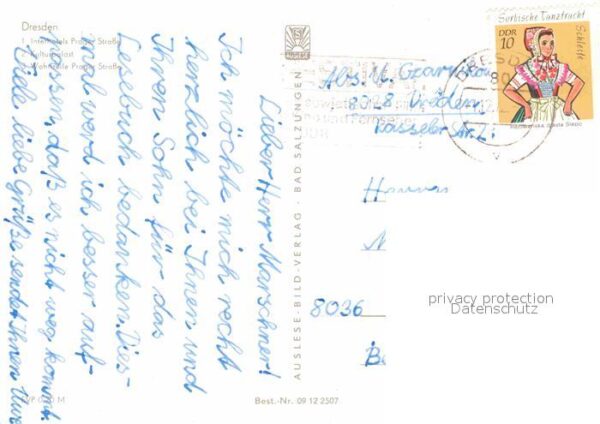 Dresden
1 Interhotels Prager Straße
2 Kulturpalast
3 Wohnzeile Prager Straße
Lieber Herr Marschner!
Ich möchte mich recht
herzlich bei Ihnen und
Ihren Sohn für das
Losbuch bedanken. Dies-
mal werd ich besser auf-
passen, daß es nicht weg kommt.
Viele liebe Grüße sendet Ihnen Uwe
AUSLESE-BILD-VERLAG · BAD SALZUNGEN
Best.-Nr. 09 12 2507
Sorbische Tanztracht
Schleife
DDR
10
DRESDEN
80
Abs. U.
8028 Dresden
Kasseler Str.
Herrn
8036
privacy protection
Datenschutz